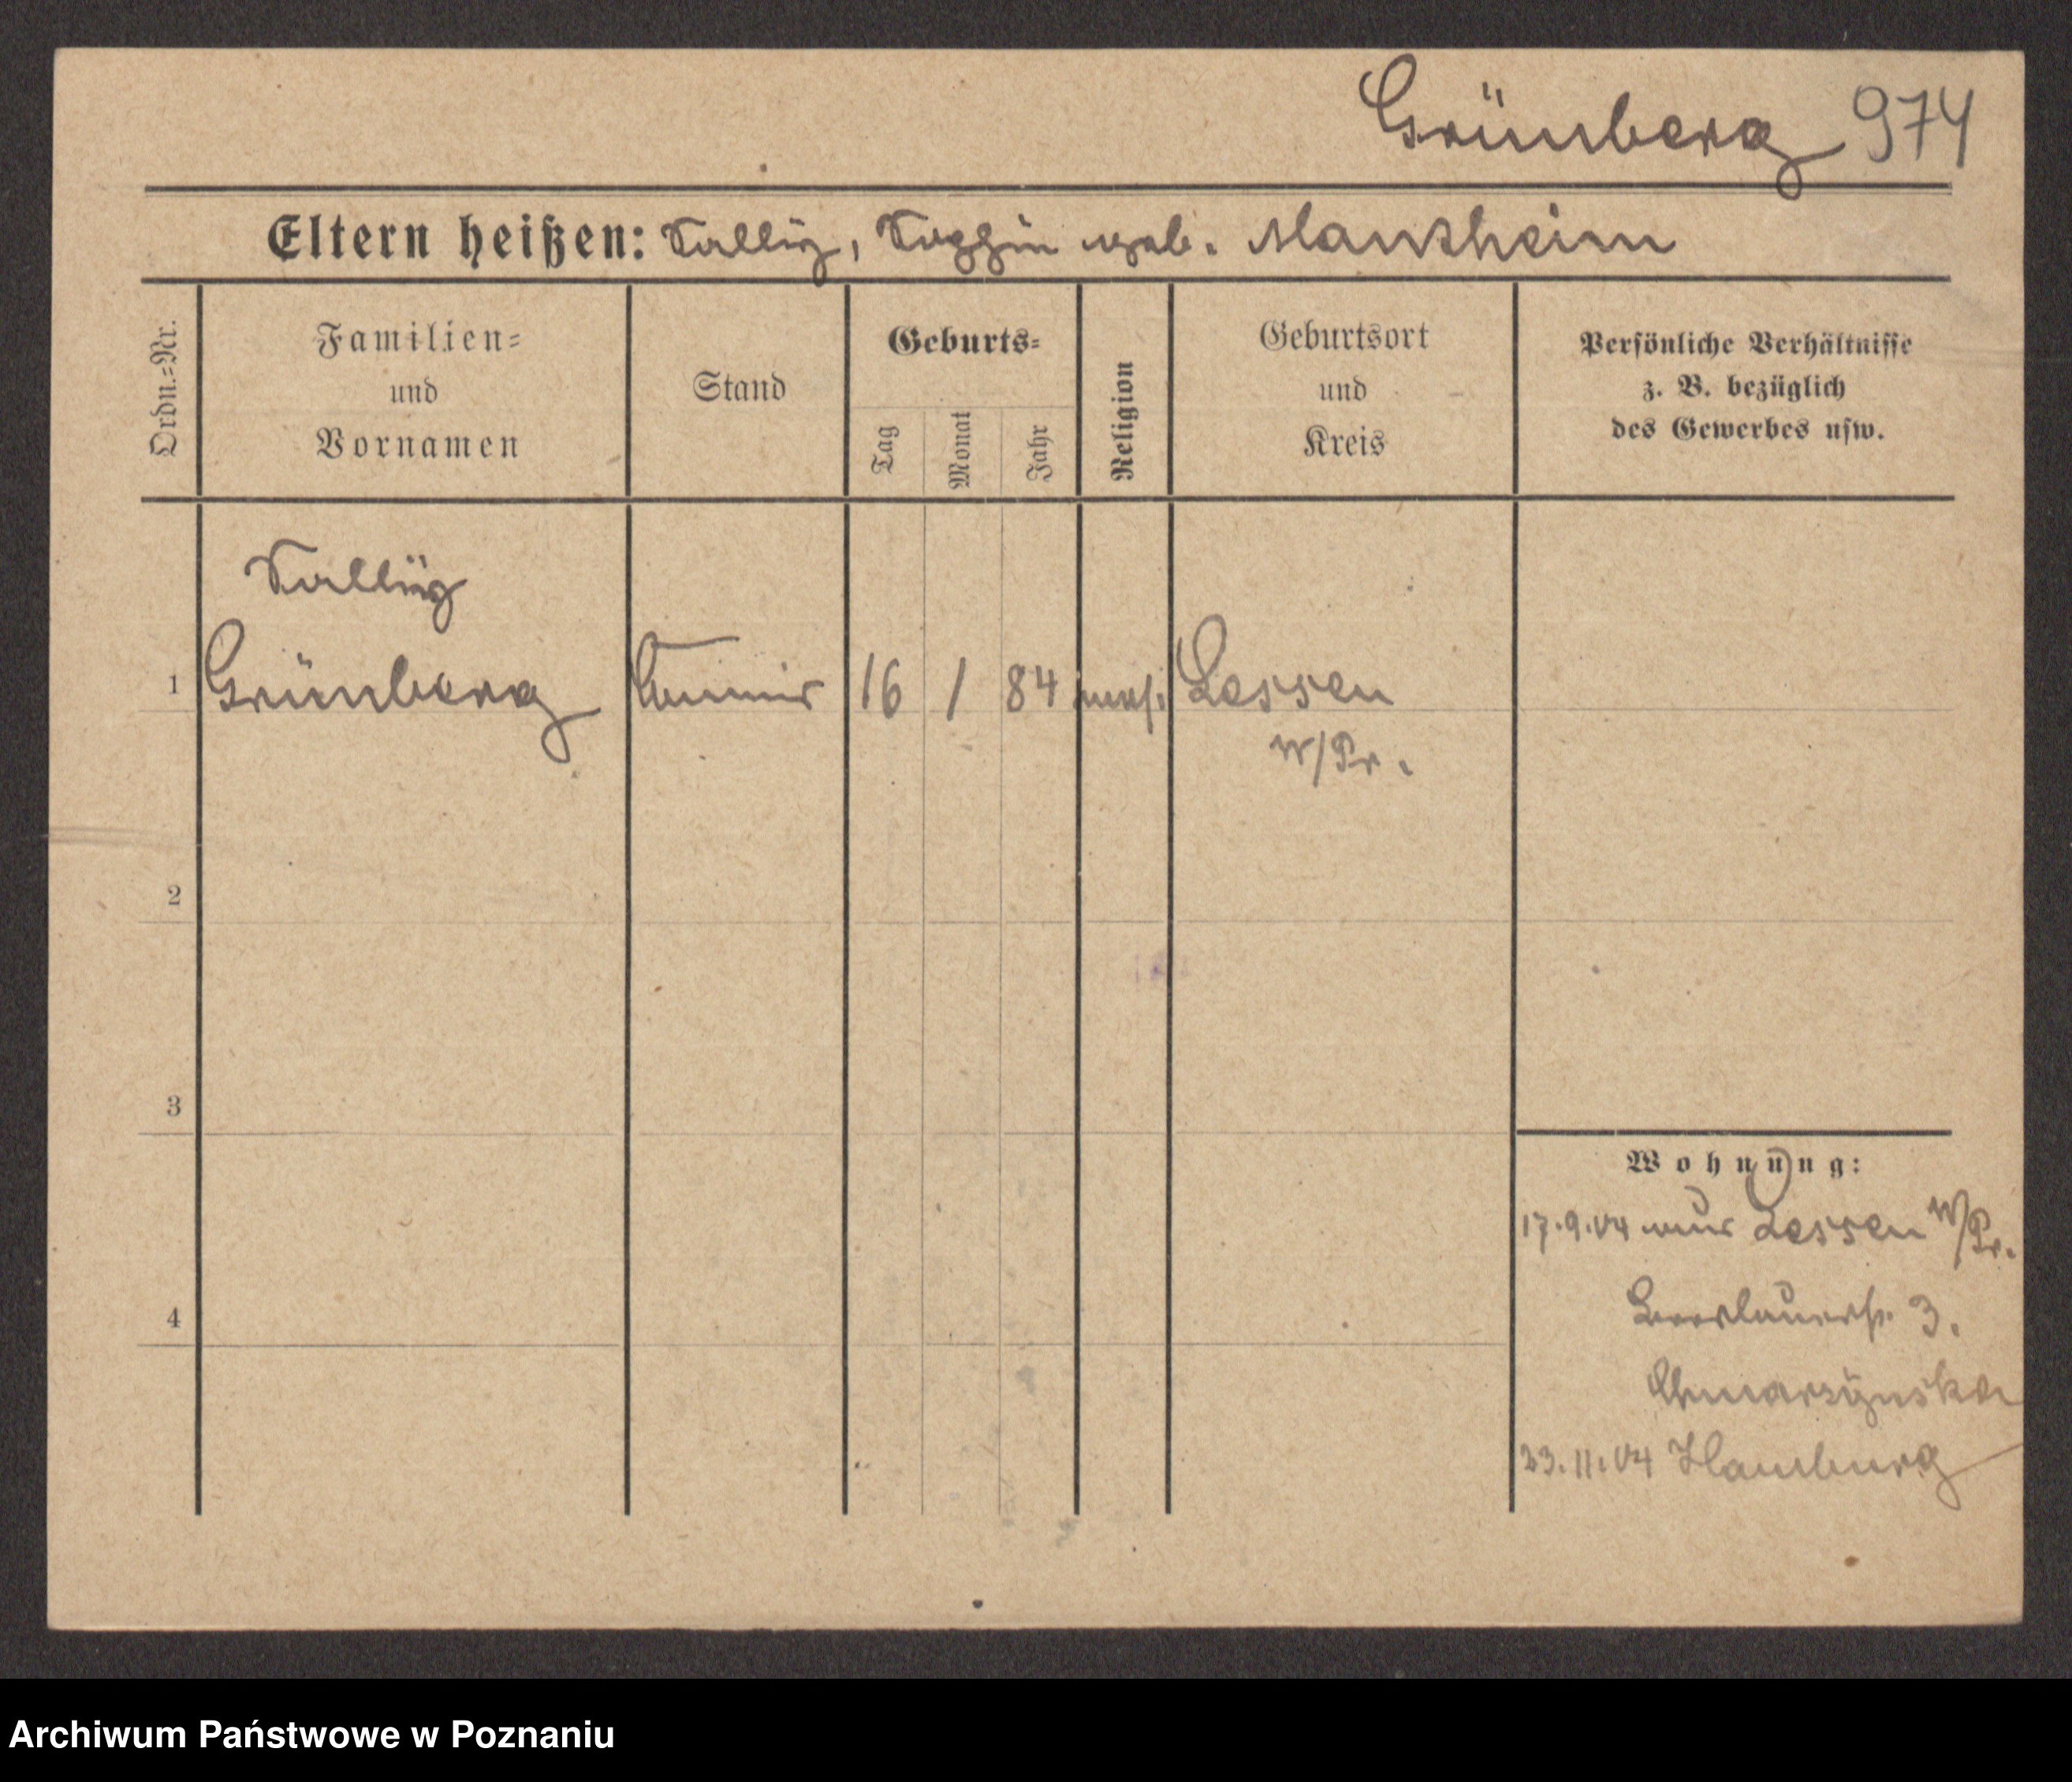 Grünberg 974
Eltern heißen: Sallig, Sophie geb. Mantheim
Ordn.=Nr.
Familien=
und
Vornamen
Stand
Geburts=
Tag
Monat
Jahr
Religion
Geburtsort
und
Kreis
Persönliche Verhältnisse
z. B. bezüglich
des Gewerbes usw.
1
Grünberg
Commis
16
1
84
mos.
Lessen
W/Pr.
2
3
4
Wohnung:
17.9.04 aus Lessen W/Pr.
Breslauerstr. 3.
23.11.04 Hamburg
Archiwum Państwowe w Poznaniu